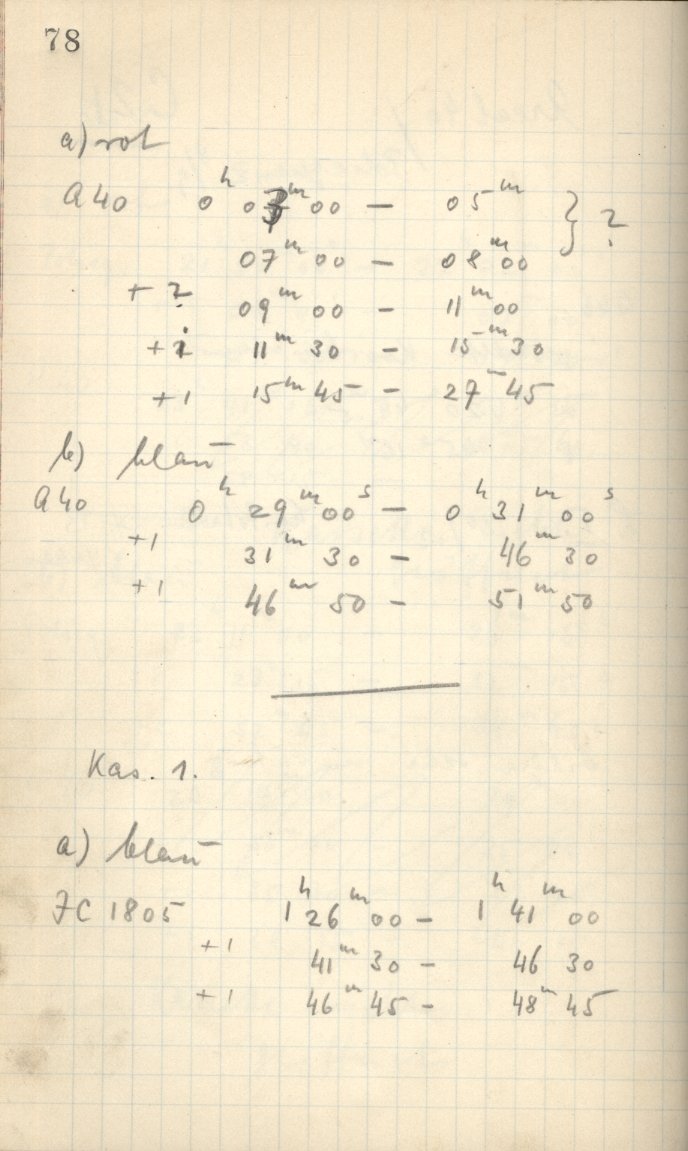 78
a) rot
A 40 0ʰ 03ᵐ 00 — 05ᵐ } ?
07ᵐ 00 — 08ᵐ 00
+ ? 09ᵐ 00 — 11ᵐ 00
+ 1 11ᵐ 30 — 15ᵐ 30
+ 1 15ᵐ 45 — 27 45
b) blau
A 40 0ʰ 29ᵐ 00ˢ — 0ʰ 31ᵐ 00ˢ
+1 31ᵐ 30 — 46ᵐ 30
+1 46ᵐ 50 — 51ᵐ 50
Kas. 1.
a) blau
JC 1805 1ʰ 26ᵐ 00 — 1ʰ 41ᵐ 00
+1 41ᵐ 30 — 46 30
+1 46ᵐ 45 — 48ᵐ 45